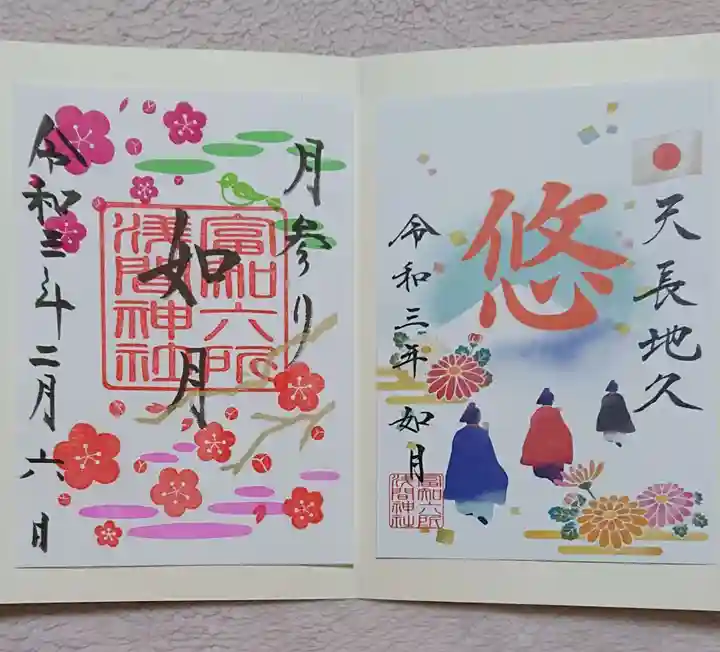 月参り
如月
富知六所
浅間神社
令和三年二月六日
天長地久
悠
令和三年 如月
富知六所
浅間神社